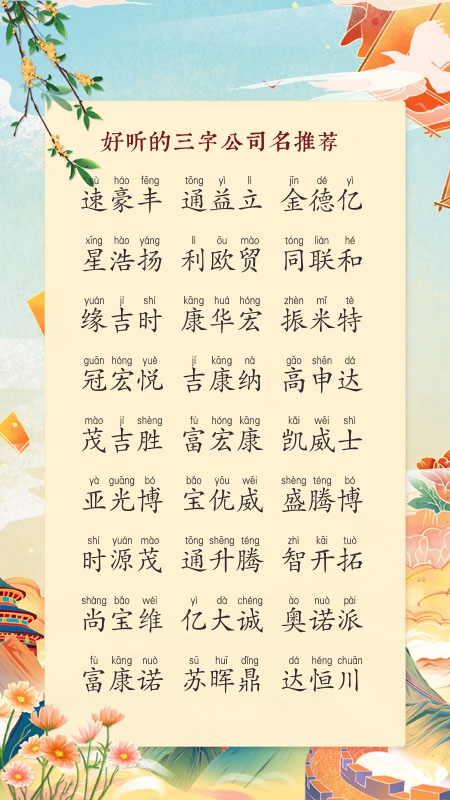 好听的三字公司名推荐
sù háo fēng tōng yì lì jīn dé yì
速豪丰 通益立 金德亿
xīng hào yáng lì ōu mào tóng lián hé
星浩扬 利欧贸 同联和
yuán jí shí kāng huá hóng zhèn mǐ tè
缘吉时 康华宏 振米特
guān hóng yuè jí kāng nà gāo shēn dá
冠宏悦 吉康纳 高申达
mào jí shèng fù hóng kāng kǎi wēi shì
茂吉胜 富宏康 凯威士
yà guāng bó bǎo yōu wēi shèng téng bó
亚光博 宝优威 盛腾博
shí yuán mào tōng shēng téng zhì kāi tuò
时源茂 通升腾 智开拓
shàng bǎo wéi yì dà chéng ào nuò pài
尚宝维 亿大诚 奥诺派
fù kāng nuò sū huī dǐng dá héng chuān
富康诺 苏晖鼎 达恒川